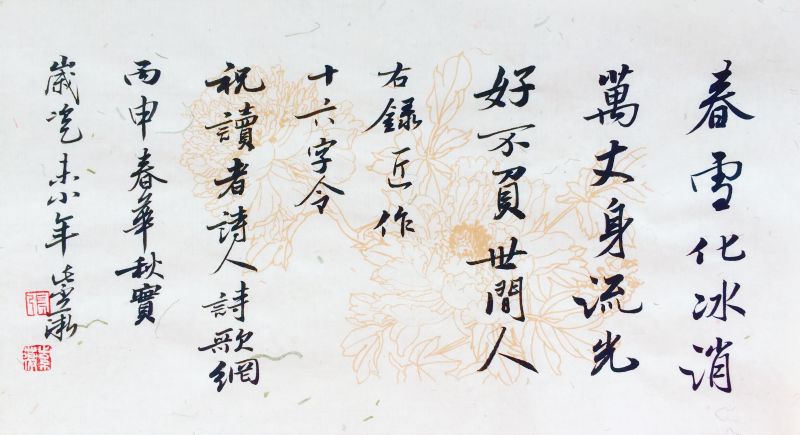 春雪化冰消
萬丈身流光
好不負世間人
右錄近作
十六字令
祝讀者詩人詩歌網
丙申春華秋實
歲次乙未小年